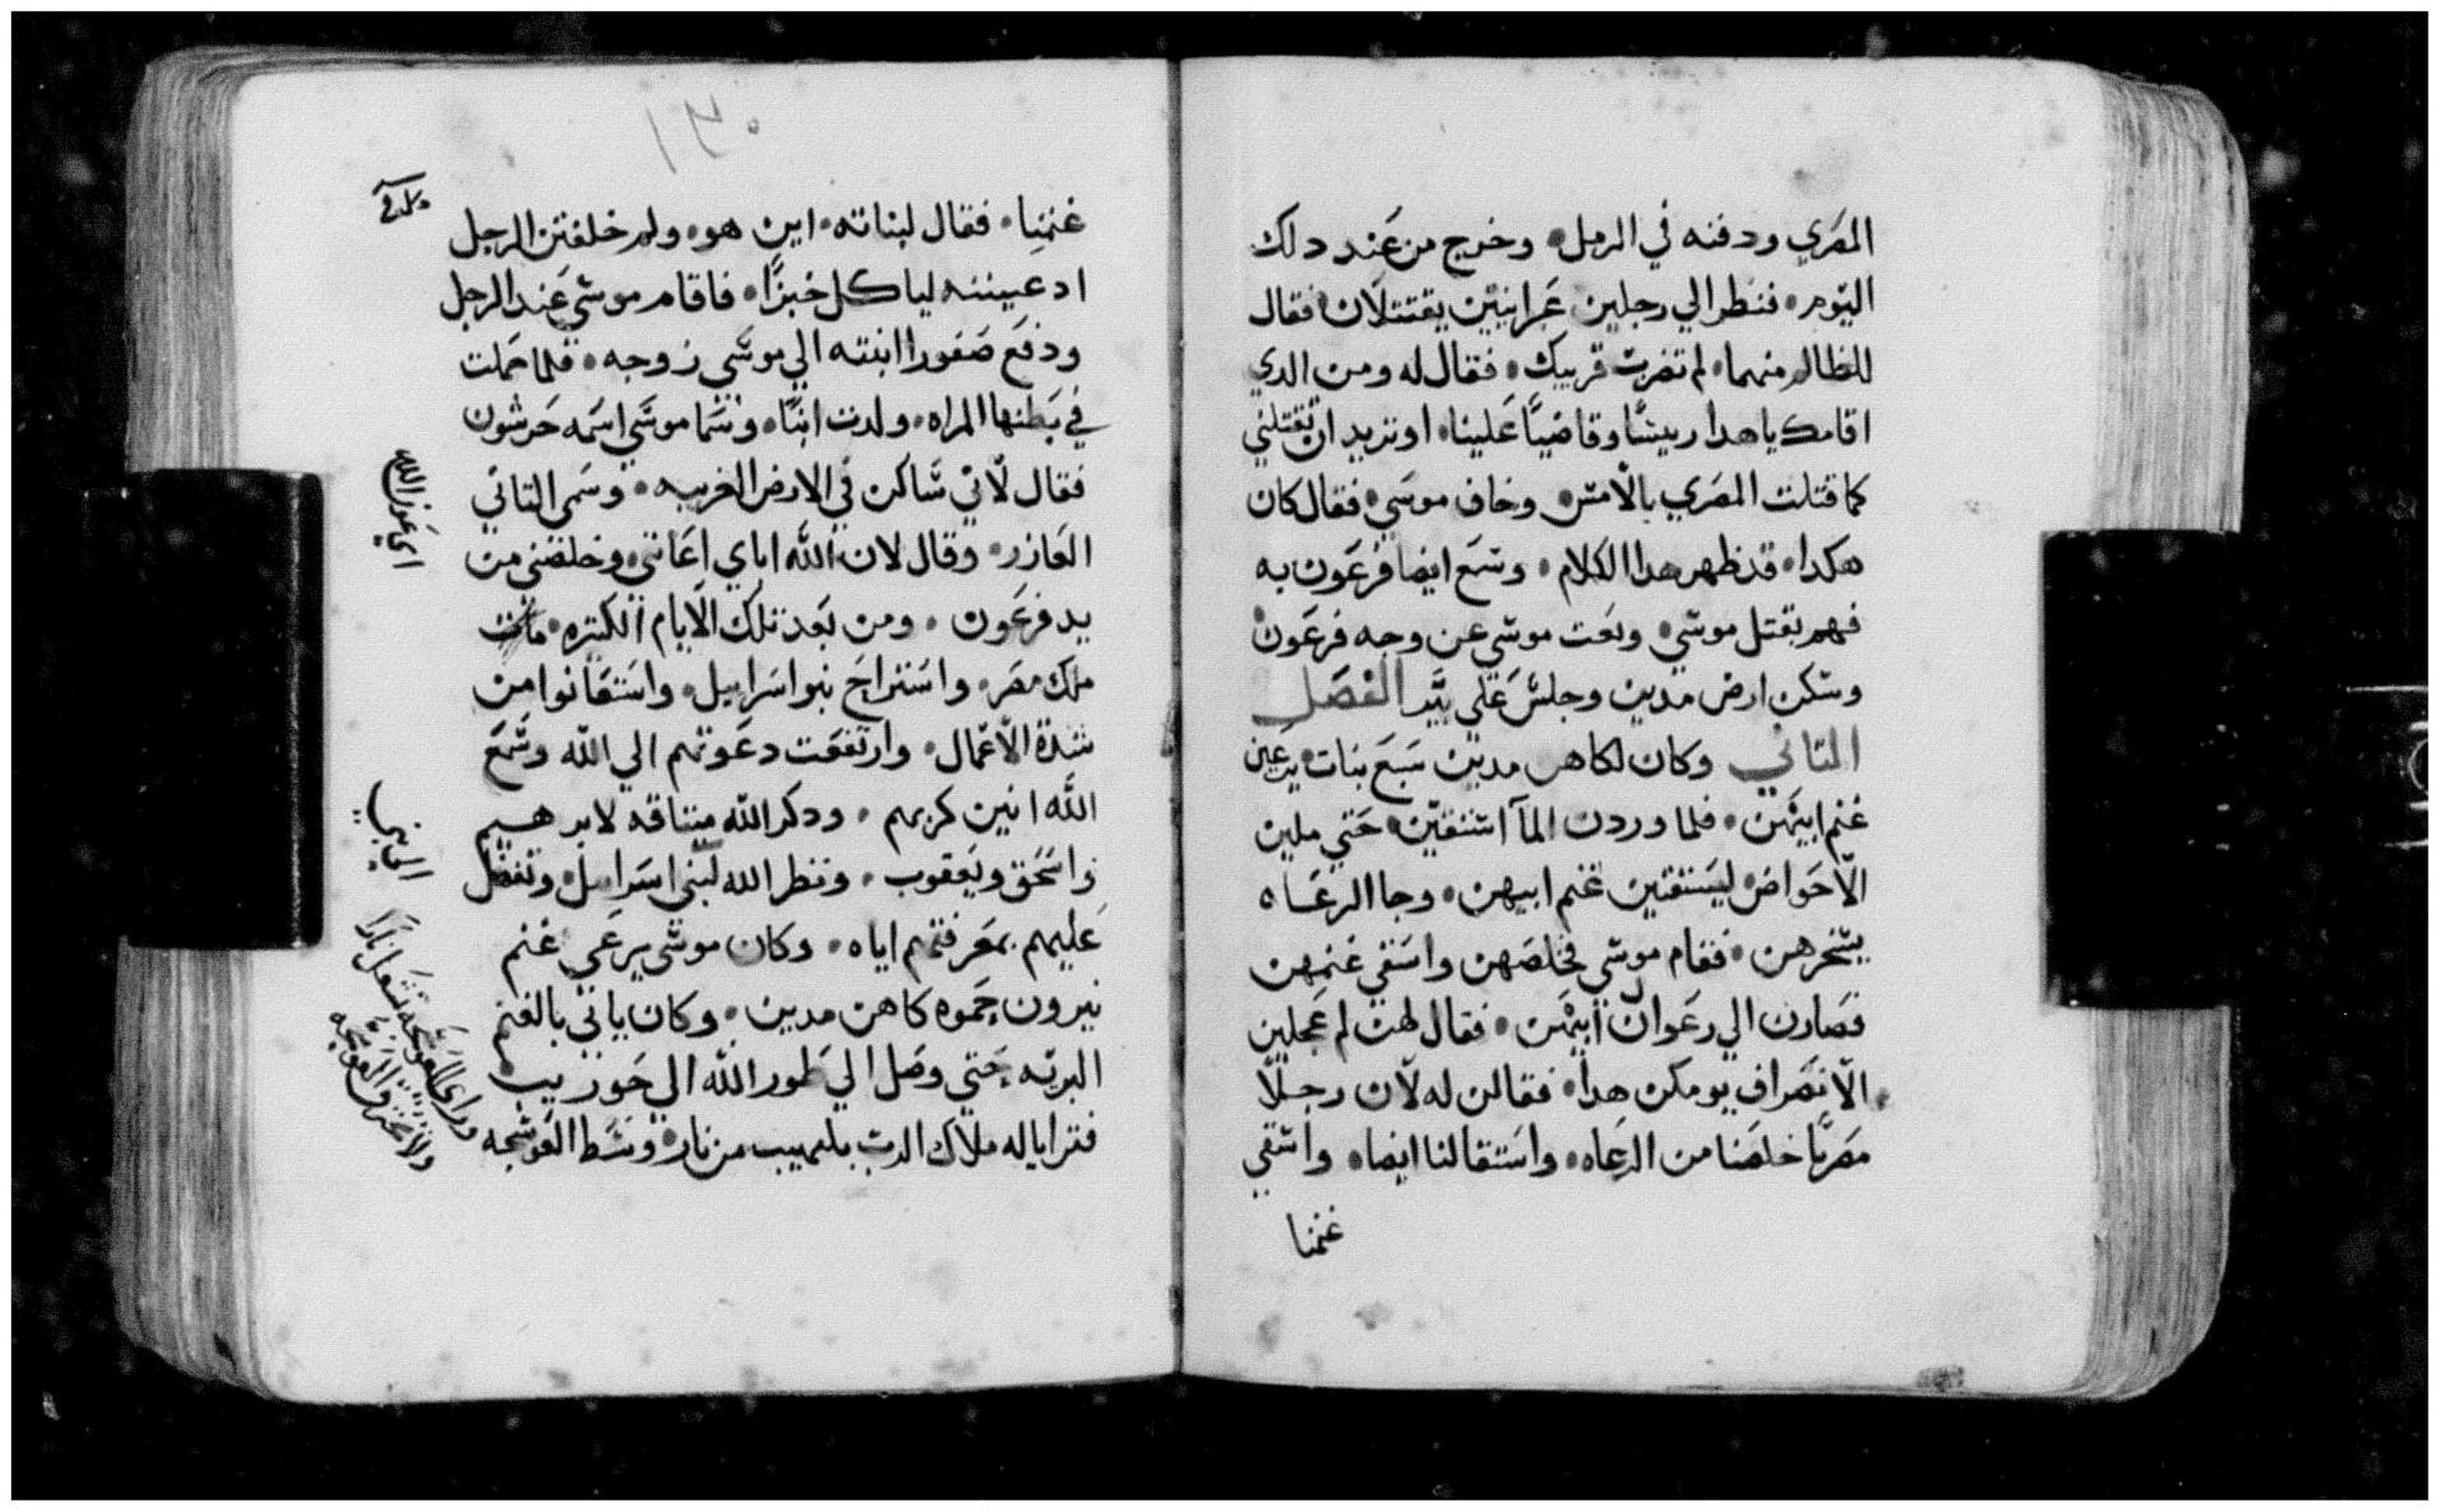 المصري ودفنه في الرمل • وخرج من عند دلك
اليوم • فنظر الي رجلين عبرانيين يقتتلان فقال
للظالم منهما • لم تضرب قريبك • فقال له ومن الدي
اقامك يا هدا رييسًا وقاضيًا علينا • او تريد ان تقتلني
كما قتلت المصري بالامس • وخاف موسي • فقال كان
هكدا • قد ظهر هدا الكلام • وسمع ايضا فرعون به
فهم بقتل موسي • وبعت موسي عن وجه فرعون
وسكن ارض مدين وجلس علي بير الفصل
التاني وكان لكاهن مدين سبع بنات يرعين
غنم ابيهن • فلما وردن المآ استقين حتي ملين
الاحواض ليستقين غنم ابيهن • وجا الرعاه
يتنحرهن • فقام موسي فخلصهن واسقي غنمهن
فصارن الي رعوال ابيهن • فقال لهن لم عجلين
الانصراف يومكن هدا • فقالن له لان رجلًا
مصريًا خلصنا من الرعاه • واستقا لنا ايضا • واسقي
غنمنا
غنمنا • فقال لبناته • اين هو • ولم خلفتن الرجل
ادعيننه لياكل خبزًا • فاقام موسي عند الرجل
ودفع صفورا ابنته الي موسي زوجه • فلما حملت
في بطنها المراه • ولدت ابنًا • وسما موسي اسمه حرشون
فقال لاني ساكن في الارض الغريبه • وسمي التاني
العازر • وقال لان الله اباي اعانني وخلصني من
يد فرعون • ومن بعد تلك الايام الكتيره مات
ملك مصر • واستراح بنو اسراييل • واستغانوا من
شدة الاعمال • وارتفعت دعوتهم الي الله وسمع
الله انين كربهم • ودكر الله ميتاقه لابرهيم
واسحق ويعقوب • ونظر الله لبني اسراييل وتفضل
عليهم بمعرفتهم اياه • وكان موسي يرعي غنم
يترون حموه كاهن مدين • وكان ياتي بالغنم
البريه حتي وصل الي طور الله الي حوريب
فترايا له ملاك الرب بلهيب من نار وسط العوسجه
اي عون الله
وراي العوسجه تشتعل نارًا
ولا تحترق العوسجه